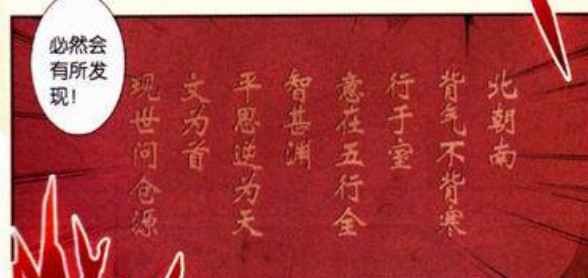 必然会
有所发
现!
北朝南
背气不背寒
行于室
意在五行全
智甚渊
平思逆为天
文为首
现世问仓源